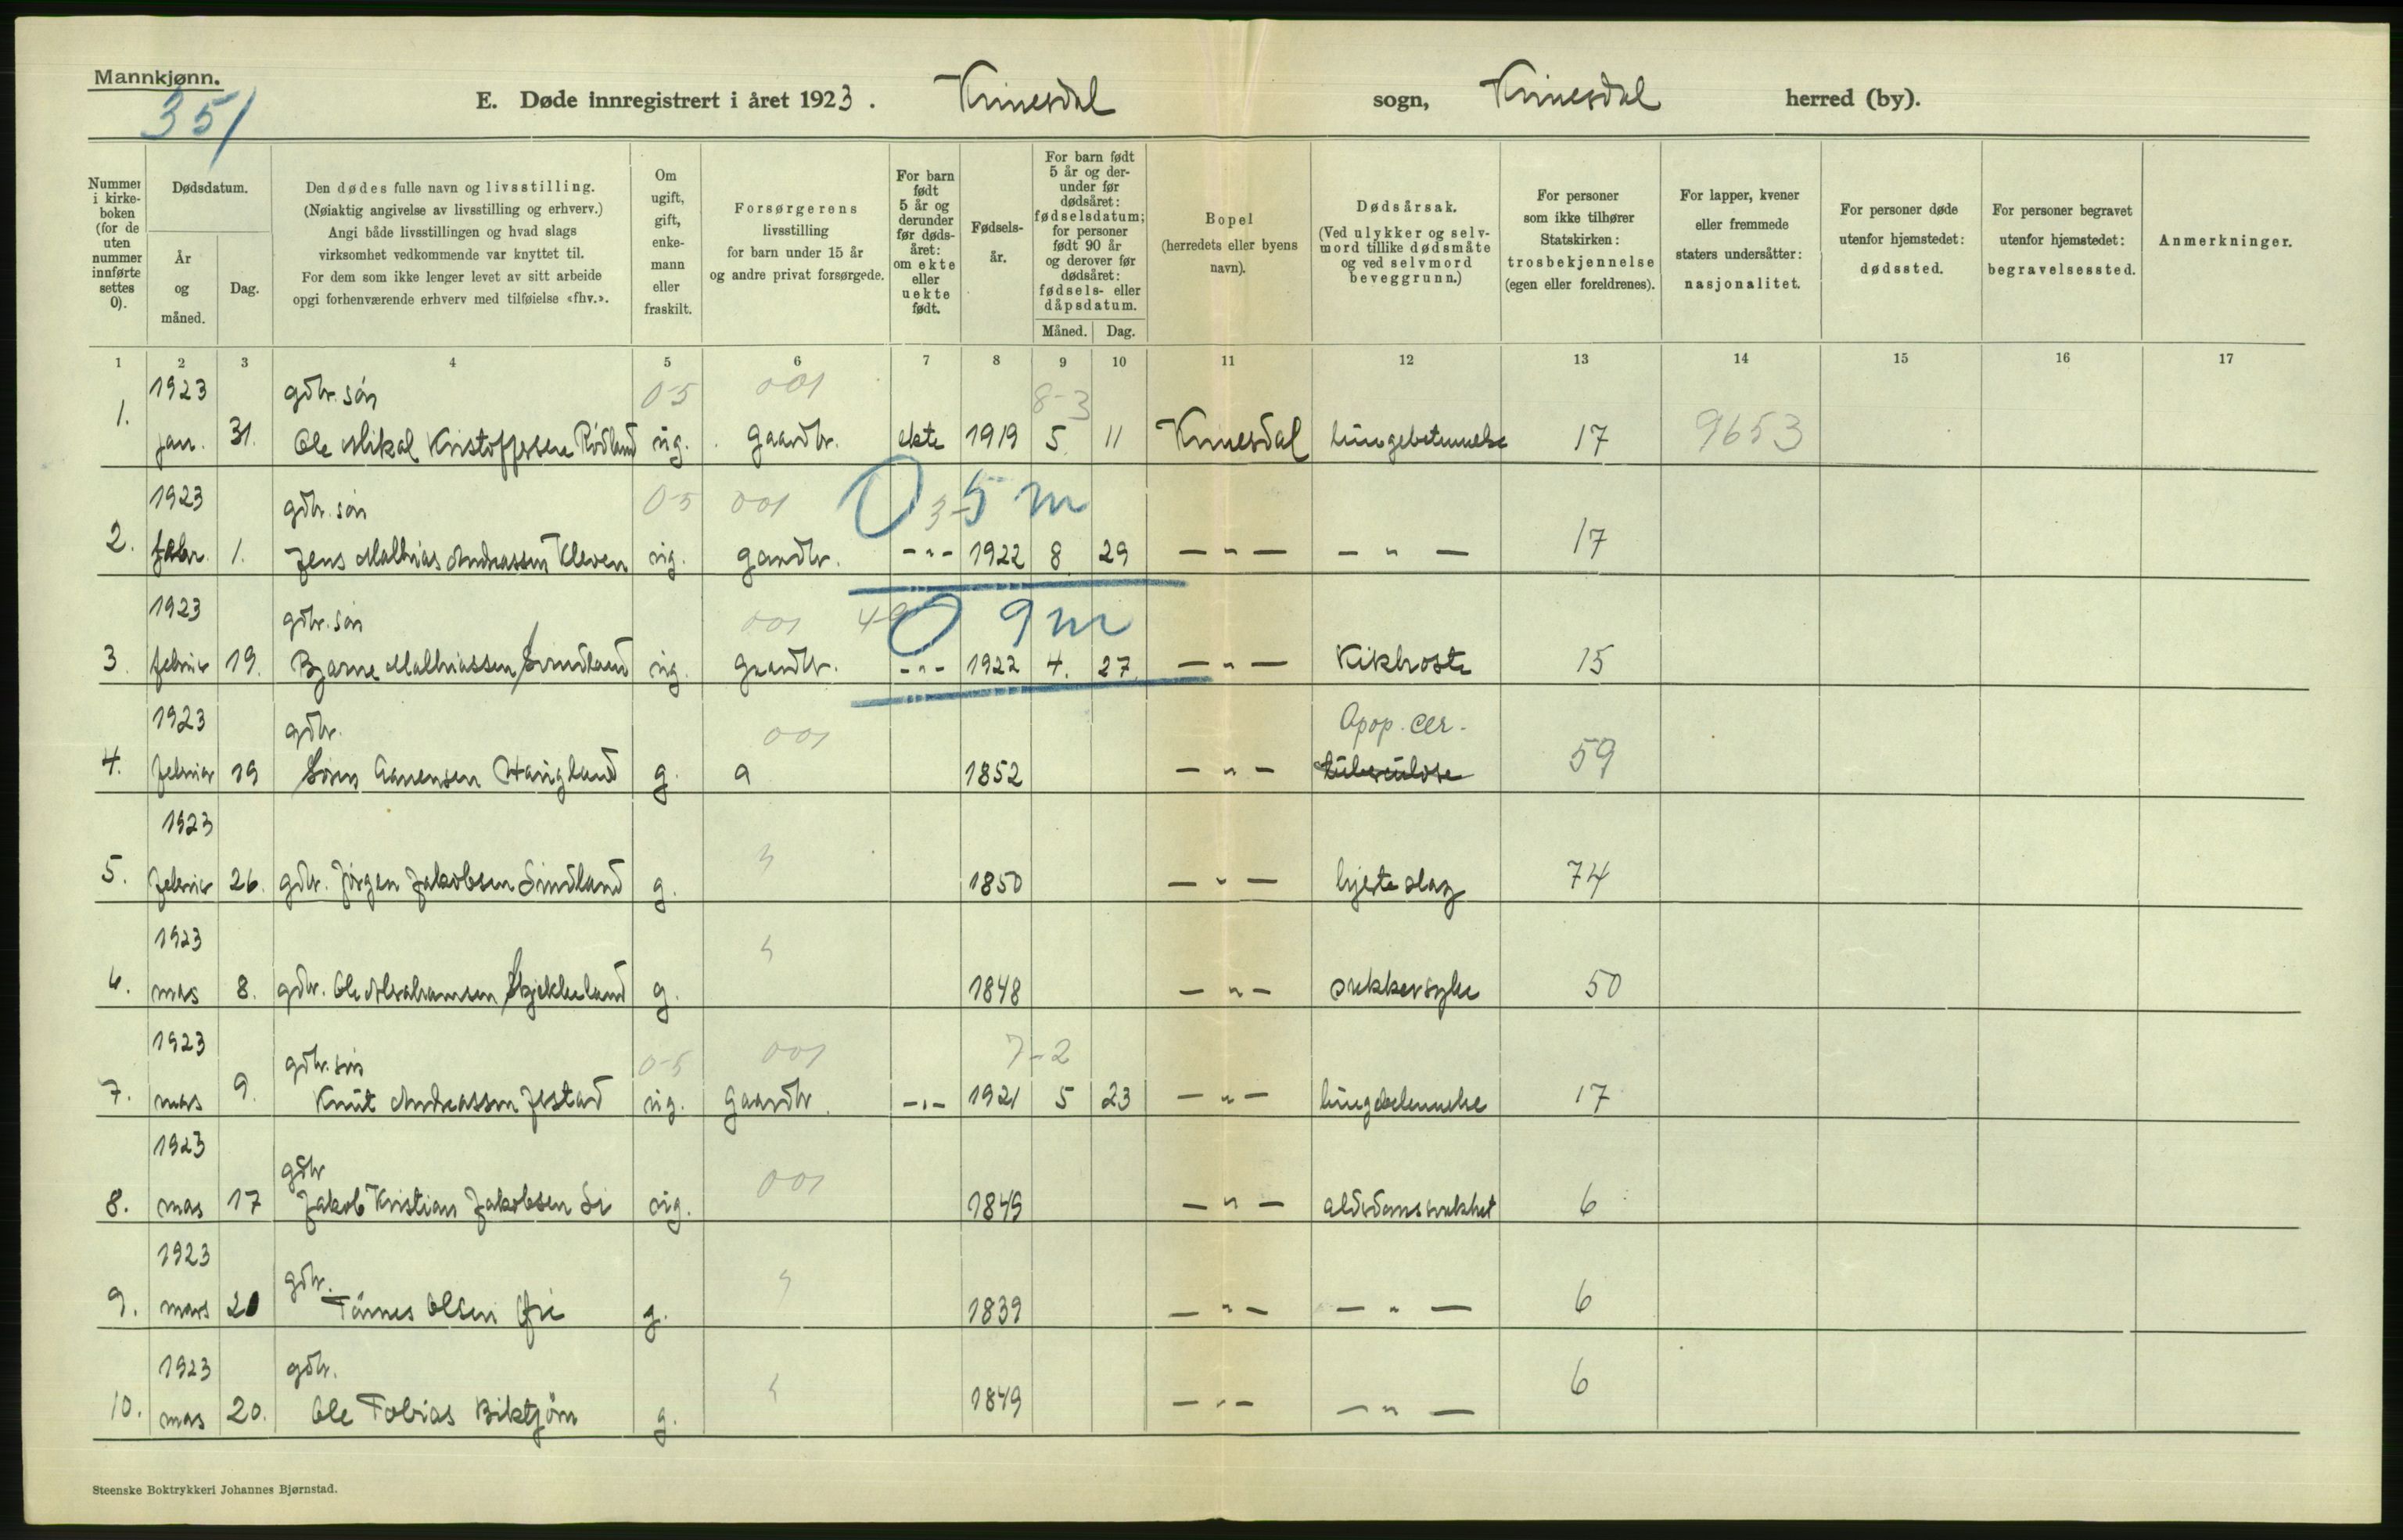 Mannkjønn.
351
E. Døde innregistrert i året 1923. Kvinesdal sogn, Kvinesdal herred (by).
Nummer i kirkeboken (for de uten nummer innførte settes 0).
Dødsdatum.
År og måned.
Dag.
Den dødes fulle navn og livsstilling.
(Nøiaktig angivelse av livsstilling og erhverv.)
Angi både livsstillingen og hvad slags
virksomhet vedkommende var knyttet til.
For dem som ikke lenger levet av sitt arbeide
opgi forhenværende erhverv med tilføielse «fhv.».
Om ugift, gift, enkemann eller fraskilt.
Forsørgerens livsstilling
for barn under 15 år
og andre privat forsørgede.
For barn født 5 år og derunder før dødsåret: om ekte eller uekte født.
Fødselsår.
For barn født 5 år og derunder før dødsåret: fødselsdatum; for personer født 90 år og derover før dødsåret: fødsels- eller dåpsdatum.
Måned. Dag.
Bopel
(herredets eller byens navn).
Dødsårsak.
(Ved ulykker og selvmord tillike dødsmåte og ved selvmord beveggrunn.)
For personer som ikke tilhører Statskirken: trosbekjennelse (egen eller foreldrenes).
For lapper, kvener eller fremmede staters undersåtter: nasjonalitet.
For personer døde utenfor hjemstedet: dødssted.
For personer begravet utenfor hjemstedet: begravelsessted.
Anmerkninger.
1 2 3 4 5 6 7 8 9 10 11 12 13 14 15 16 17
1923 gdbr. søn 0-5 001 8-3
1. jan. 31. Ole Mikal Kristoffersen Rødland ug. gaardbr. ekte 1919 5. 11 Kvinesdal lungebetennelse 17 9653
1923 gdbr. søn 0-5 001 0 3-5 m
2. febr. 1. Jens Mathias Andreassen Kleven ug. gaardbr. -"- 1922 8. 29 — " — — " — 17
1923 gdbr. søn 001 0 9 m
3. februar 19. Bjarne Mathiassen Svindland ug. gaardbr. -"- 1922 4. 27. — " — Kikhoste 15
1923 gdbr. 001 Apop. cer.
4. februar 19 Sören Aanensen Haugland g. a 1852 — " — tuberkulose 59
1923
5. februar 26. gdbr. Jörgen Jakobsen Sindland g. " 1850 — " — hjerteslag 74
1923
6. mars 8. gdbr. Ole Abrahamsen Skjekkeland g. " 1848 — " — sukkersyke 50
1923 gdbr. søn 0-5 001 7-2
7. mars 9. Knut Andreassen Jestad ug. Gaardbr. -"- 1921 5 23 — " — lungebetennelse 17
1923 gdbr 001
8. mars 17 Jakob Kristian Jakobsen Li ug. 1849 — " — alderdomssvakhet 6
1923 gdbr.
9. mars 20 Tönnes Olsen Øie g. " 1839 — " — — " — 6
1923 gdbr.
10. mars 20. Ole Tobias Biktjörn g. " 1849 — " — — " — 6
Steenske Boktrykkeri Johannes Bjørnstad.